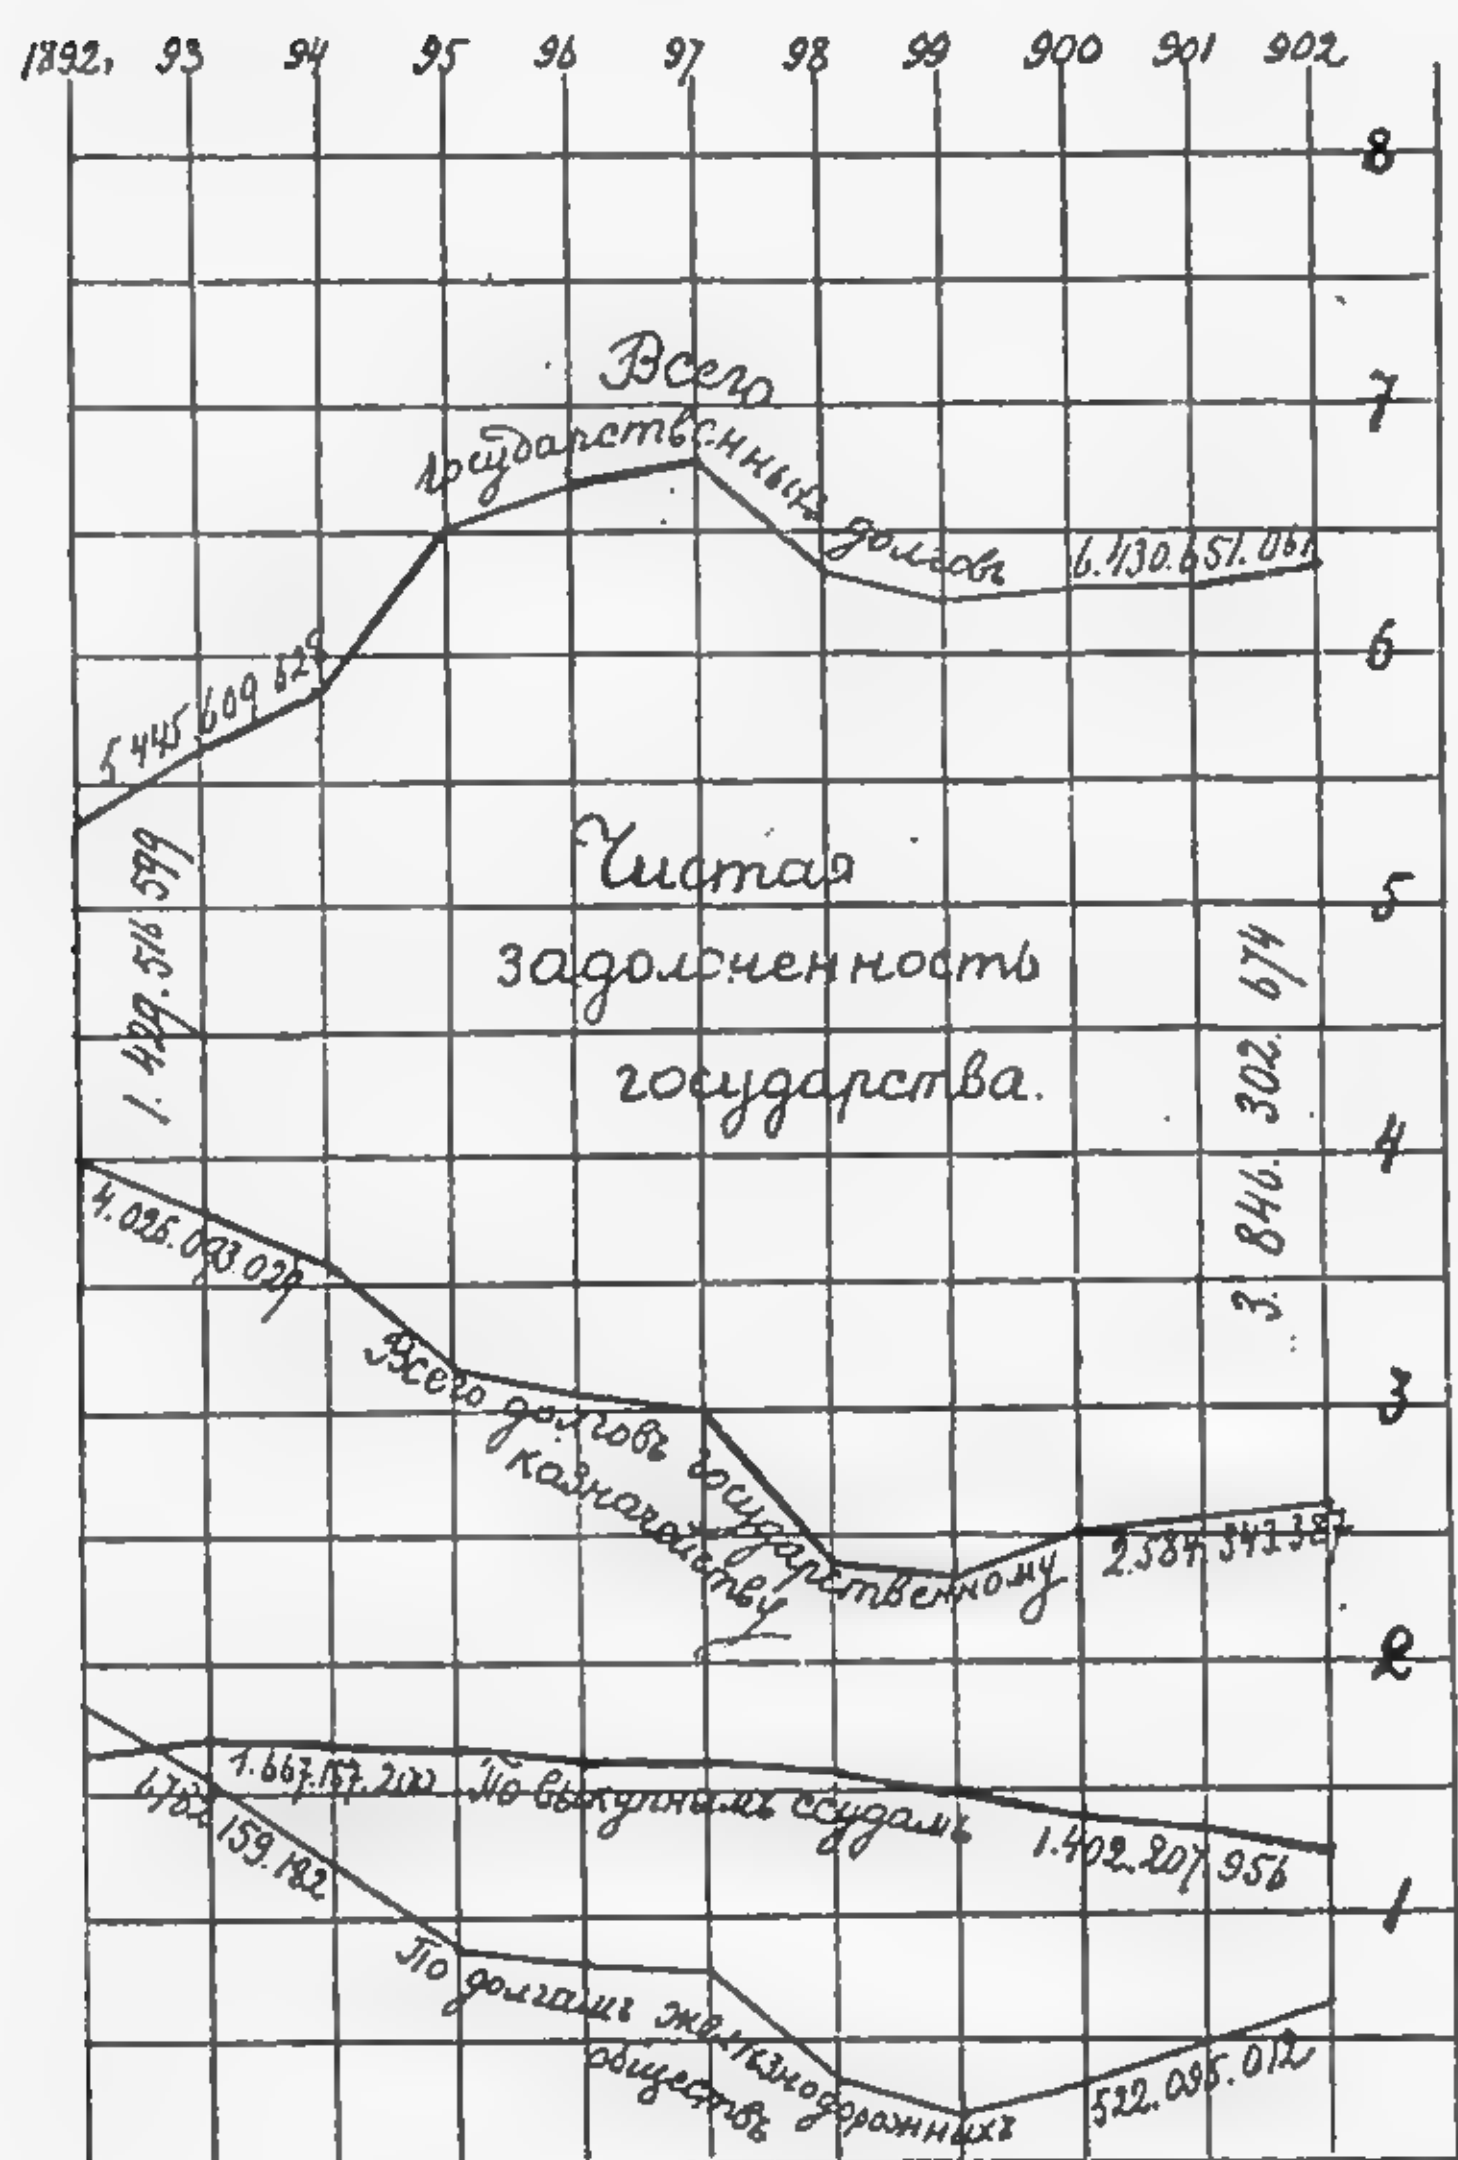 1892, 93 94 95 96 97 98 99 900 901 902
8
Всего
7
государственныхъ долговъ
6.430.651.061
6
5 445 609 629
Чистая
5
задолженность
государства.
1. 429. 516 599
3. 846. 302. 674
4
4.026.093.029
3
Всего долговъ государственному
казначейству
2.584 343 387
2
1.667.157.200 По выкупнымъ ссудамъ 1.402.207 956
159.182
1
По долгамъ желѣзнодорожныхъ
обществъ
522.095.012